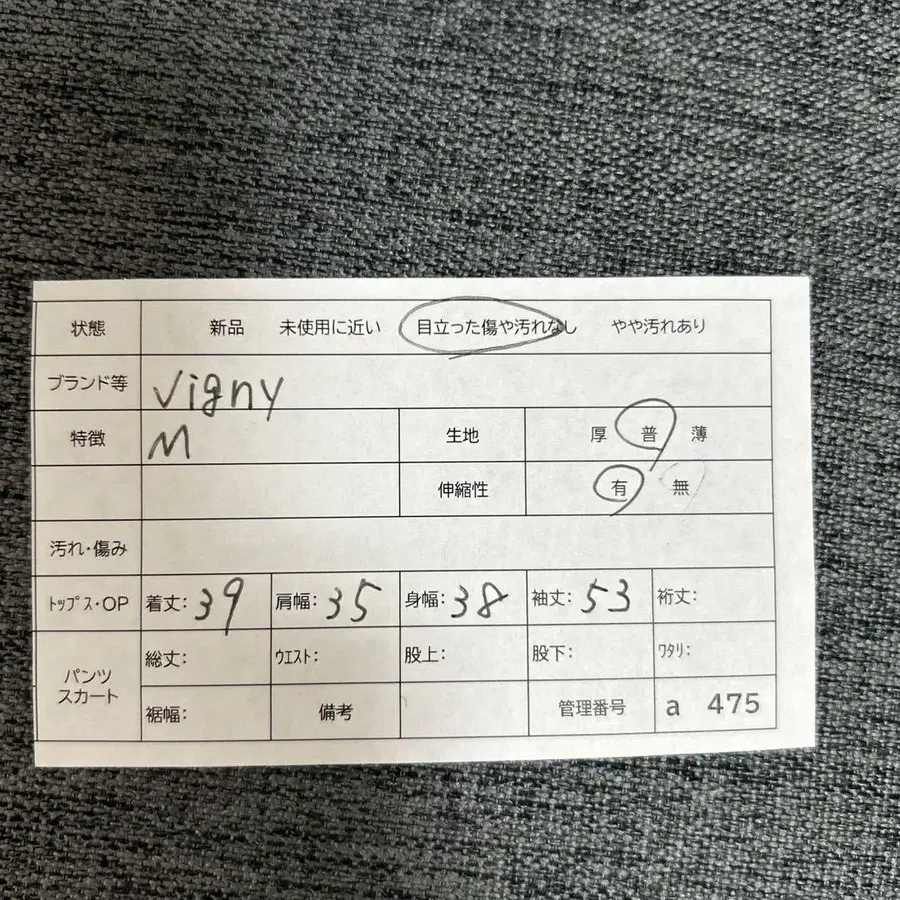 状態 新品 未使用に近い 目立った傷や汚れなし やや汚れあり
ブランド等 Vigny
特徴 M 生地 厚 普 薄
伸縮性 有 無
汚れ・傷み
トップス・OP 着丈: 39 肩幅: 35 身幅: 38 袖丈: 53 裄丈:
パンツ スカート 総丈: ウエスト: 股上: 股下: ワタリ:
裾幅: 備考 管理番号 a 475